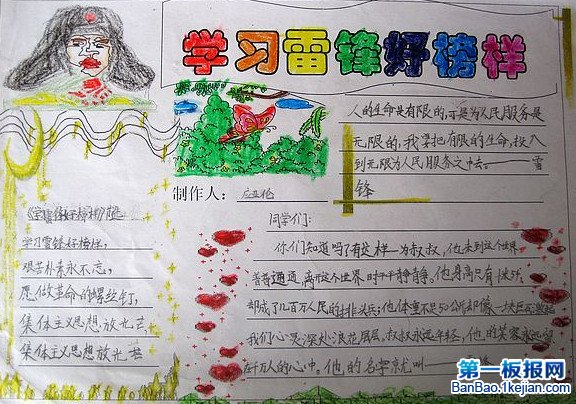 学习雷锋好榜样
人的生命是有限的,可是为人民服务是
无限的,我要把有限的生命,投入
到无限为人民服务之中去。——雷
锋
制作人:
学习雷锋好榜样,
艰苦朴素永不忘,
愿做革命的螺丝钉,
集体主义思想放光芒,
集体主义思想放光芒
同学们:
你们知道吗?有这样一为叔叔,他来到这个世界
普普通通,离开这个世界时平平静静。他身高只有
却成了几百万人民的排头兵;他体重不足50公斤却像一块巨石激起
我们心灵深处浪花层层,叔叔永远年轻,他的笑容永远留
在千万人的心中。他的名字就叫——
第一板报网
BanBao.1kejian.com